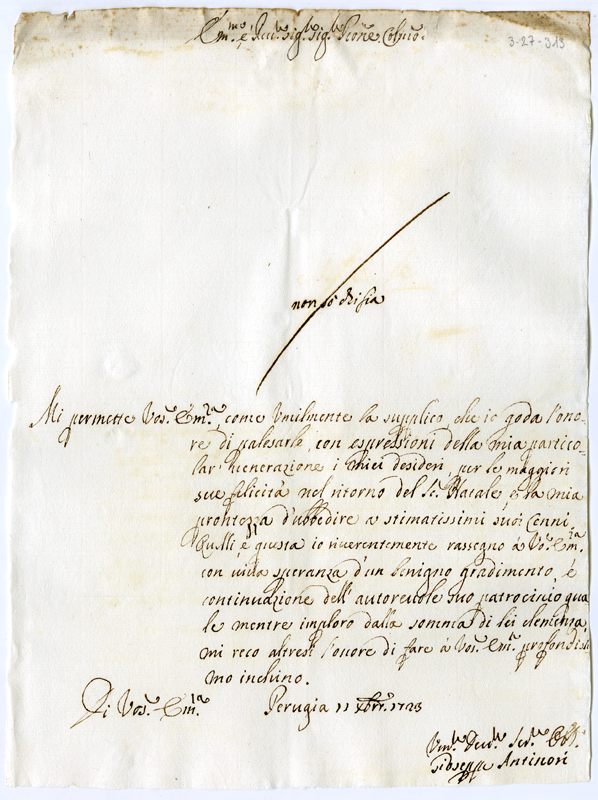 Em.mo e Rev.mo Sig.r Sig.r P.rone Col.mo
3-27-313
non so chi sia
Mi permette Vos.a Em.za come umilmente la supplico, che io goda l'ono-
re di palesarle, con espressioni della mia partico-
lar venerazione i miei desideri, per le maggiori
sue felicità nel ritorno del S. Natale, e la mia
prontezza d'ubbedire a stimatissimi suoi Cenni,
è giusta io riverentemente rassegno à Vos.a Em.za
con viva speranza d'un benigno gradimento, é
continuazione dell'autorevole suo patrocinio qua
le mentre imploro dalla somma di lei clemenza,
mi reco altresì l'onore di fare à Vos.a Em.za profondissi
mo inchino.
Di Vos.a Em.za Perugia 11 Xbre 1723
Um.mo Dev.mo Ser.re
Giuseppe Antinori